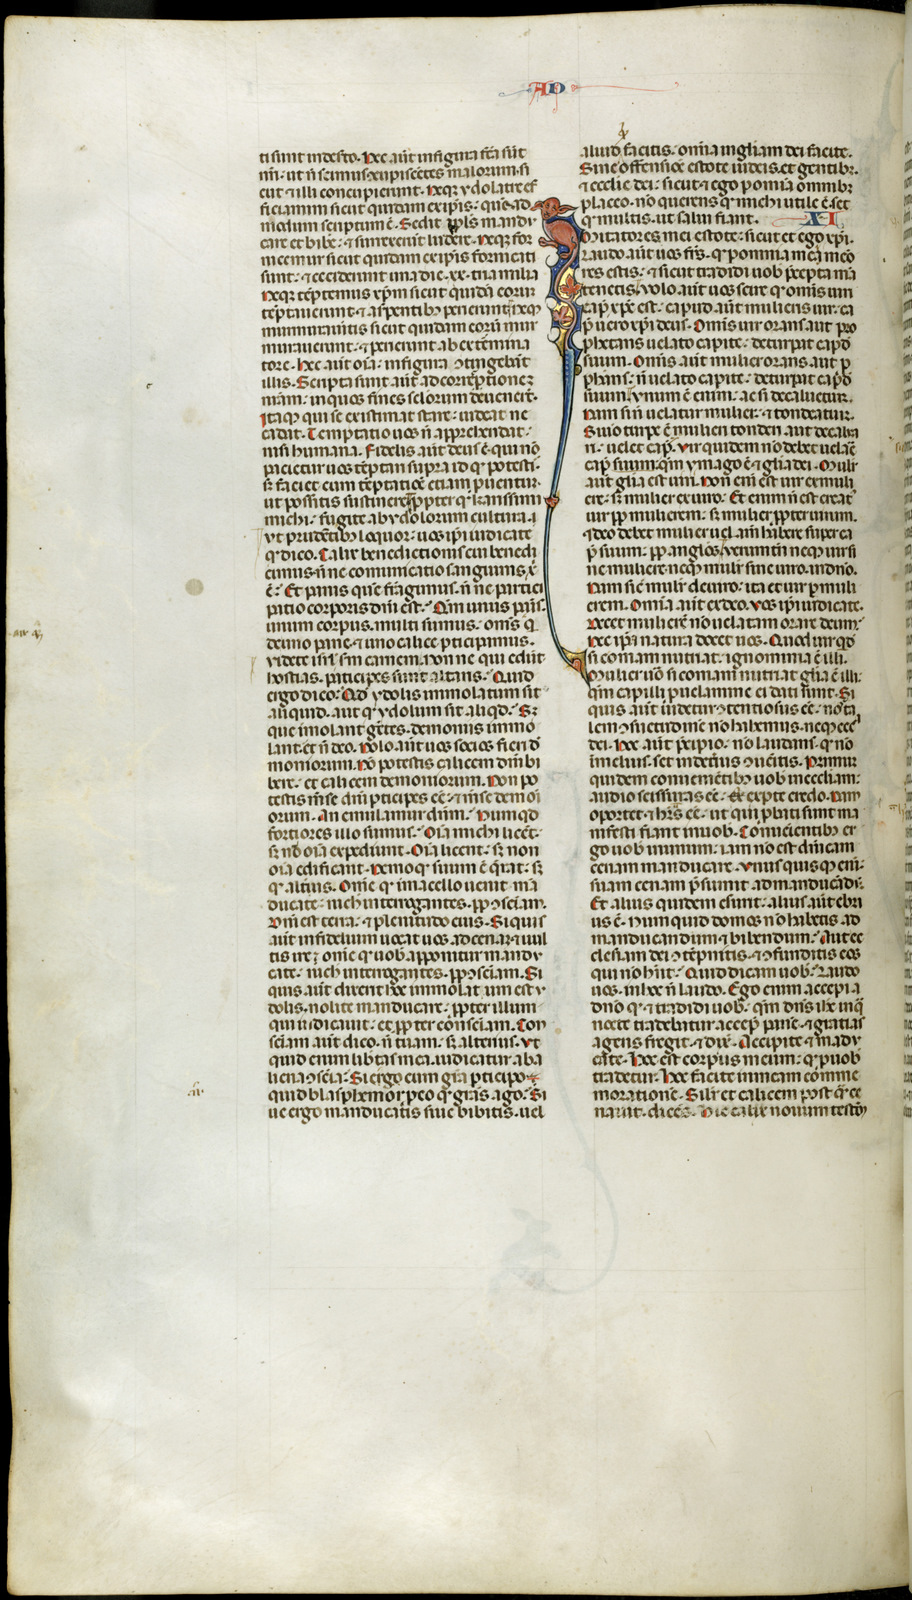 AD
ti sunt in deserto. Hec aūt in figura fc̄a sūt
nr̄i. ut n̄ simus ꝯcupiscētes malorum. si
cut ⁊ illi concupierunt. Neqꝫ ydolatre ef
ficiamini sicut quidam ex ip̄is. que ad
modum scriptum ē. Sedit ppl̄s mandu
care et bibe᷑. ⁊ surrexerūt ludere. Neqꝫ for
nicemur sicut quidam ex ip̄is fornicati
sunt. ⁊ ceciderunt una die .xx. tria milia
Neqꝫ tēptemus xp̄m sicut quidā eorū
tēptauerunt. ⁊ a serpentibꝫ perierunt. Neqꝫ
murmuraueritis sicut quidam eorū mur
murauerunt. ⁊ perierunt ab extermina
tore. Hec aūt oīa. in figura ꝯtingebāt
illis. Scripta sunt aūt ad correptionē
nr̄am. in quos fines seculorum deuenert̄.
Itaqꝫ qui se existimat stare. uideat ne
cadat. Temptatio uos n̄ apprehendat.
nisi humana. Fidelis aūt deus ē. qui nō
pacietur uos tēptari supra id qͥ potestis.
sꝫ faciet cum tēptatiōe etiam puentū.
ut possitis sustinere. propter qͥ karissimi
michi. fugite ab ydolorum cultura.
vt prudētibꝫ loquor. uos ip̄i iudicate
qͥ dico. Calix benedictionis cui benedi
cimus. n̄ne comunicatio sanguinis xͥ
ē. Et panis que frāgimus. n̄ne partici
patio corporis dn̄i est. Qm̄ unus panis.
unum corpus. multi sumus. omīs qͥ
de uno pane. ⁊ uno calice pticipamus.
videte isrl̄ sm̄ carnem. Nonne qui edūt
hostias. participes sunt altaris. Quid
ergo dico. Qd̄ ydolis immolatum sit
aliquid. aut qͥ ydolum sit aliqd̄. Sꝫ
que imolant gētes. demoniis immo
lant. et n̄ deo. Nolo aūt uos socios fieri de
moniorum. Nō potestis calicem dn̄i bi
bere. et calicem demoniorum. Non po
testis mēse dn̄i pticipes ēē. ⁊ mēse demoi
orum. An emulamur dn̄m. Numqd
fortiores illo sumus. Oīa michi licēt.
sꝫ nō oīa expediunt. Oīa licent. sꝫ non
oīa edificant. Nemo qͥ suum ē qͥrat. sꝫ
qͥ alt̄ius. Omē qͥ in macello uenit mā
ducate. nich̄ interrogantes. pp̄ ꝯsciam.
Dn̄i est terra. ⁊ plenitudo eius. Si quis
aūt infidelium uocat uos ad cenā. ⁊ uul
tis ire. omē qͥ uob̄ apponitur mandu
cate. nich̄ interrogantes. pp̄ ꝯsciam. Si
quis aūt dixerit hoc immolatum est y
dolis. nolite manducare. ppter illum
qui iudicauit. et ppter consciam. Con
sciam aūt dico. n̄ tuam. sꝫ alterius. Vt
quid enim libtas mea. iudicatur ab a
liena ꝯscia. Si ergo cum gr̄a pticipo.
quid blasphemor p eo qͥ grās ago. Si
ue ergo manducatis siue bibitis. uel
aliud facitis. omīa in gl̄iam dei facite.
Sine offensiōe estote iudeis. et gentibꝫ.
⁊ eccl̄ie dei. sicut ⁊ ego p omīa omībꝫ
placeo. nō querens qͥ michi utile ē. set
qͥ multis. ut salui fiant. XI
Mitatores mei estote. sicut et ego xp̄i.
Laudo aūt uos fr̄s. qͥ p omnia mei memo
res estis. ⁊ sicut tradidi uob̄ p̄cepta mea
tenetis. Volo aūt uos scire qͥ omīs uiri
cap̄ xp̄c est. capud aūt mulieris uir. ca
p̄ uero xp̄i deus. Omīs uir orans aut pro
phetans uelato capite. deturpat capd̄
suum. Omīs aūt mulier orans aut p
phans. n̄ uelato capite. deturpat capd̄
suum. Vnum ē enim. ac si decaluetur.
Nam si n̄ uelatur mulier. ⁊ tondeatur.
Si uō turpe ē mulieri tonderi. aut decalua
ri. uelet cap̄. Vir quidem nō debet uelare
cap̄ suum. qm̄ ymago ē ⁊ gl̄ia dei. Mulr̄
aūt gl̄ia est uiri. Non eni est uir ex muli
ere. sꝫ mulier ex uiro. Et enim n̄ est creat᷑
uir pp̄ mulierem. sꝫ mulier ppter uirum.
Ideo debet mulier uelam̄ habere super ca
p̄ suum. pp̄ anglos. Verumtn̄ neqꝫ uir si
ne muliere. neqꝫ mulr̄ sine uiro. in dn̄o.
Nam sic̄ mulr̄ de uiro. ita et uir p muli
erem. Omīa aūt ex deo. Vos ip̄i iudicate.
Decet mulierē nō uelatam orare deum.
Nec ip̄a natura docet uos. Quod uir qd̄
si comam nutriat. ignominia ē illi.
Mulier uō si comam nutriat gl̄ia ē illi.
qm̄ capilli p uelamine ei dati sunt. Si
quis aūt uidetur ꝯtentiosus ēē. nos ta
lem ꝯsuetudinē nō habemus. neqꝫ ecc̄
dei. Hoc aūt p̄cipio. nō laudans. qͥ nō
in melius. set in det̄ius ꝯuēitis. Primū
quidem conuenientibꝫ uob̄ in eccl̄iam.
audio scissuras ēē. Et ex pte credo. Nam
oportet ⁊ h̄rēs ēē. ut qui pbati sunt ma
nifesti fiant in uob̄. Conueientibꝫ er
go uob̄ in unum. iam nō est dn̄icam
cenam manducare. Vnus quisqꝫ eni.
suam cenam p̄sumit ad manducādū.
Et alius quidem esurit. alius aūt ebri
us ē. Numquid domos nō habetis ad
manducandum ⁊ bibendum. Aut ec
clesiam dei ꝯtēpnitis. ⁊ ꝯfunditis eos
qui nō hn̄t. Quid dicam uob̄. Laudo
uos. in hoc n̄ laudo. Ego enim accepi a
dn̄o qͥ ⁊ tradidi uob̄. qm̄ dn̄s ihc̄ in qͣ
nocte tradebatur accep̄ panē. ⁊ gratias
agens fregit ⁊ dix̄. Accipite ⁊ mandu
cate. Hoc est corpus meum. qͥ p uob̄
tradetur. Hoc facite in meam comme
morationē. Silr̄ et calicem post qͣ ce
nauit. dicēs. Hic calix nouum testm̄